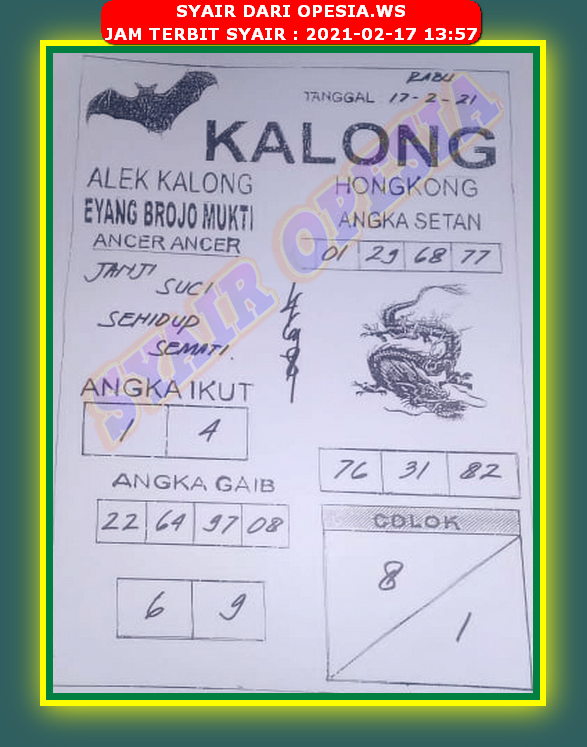 SYAIR DARI OPESIA.WS
JAM TERBIT SYAIR : 2021-02-17 13:57
RABU
TANGGAL 17-2-21
KALONG
ALEK KALONG
EYANG BROJO MUKTI
ANCER ANCER
HONGKONG
ANGKA SETAN
01 29 68 77
JANJI
SUCI
SEHIDUP
SEMATI.
ANGKA IKUT
1 4
76 31 82
ANGKA GAIB
22 64 97 08
COLOK
8
1
6 9
SYAIR OPESIA